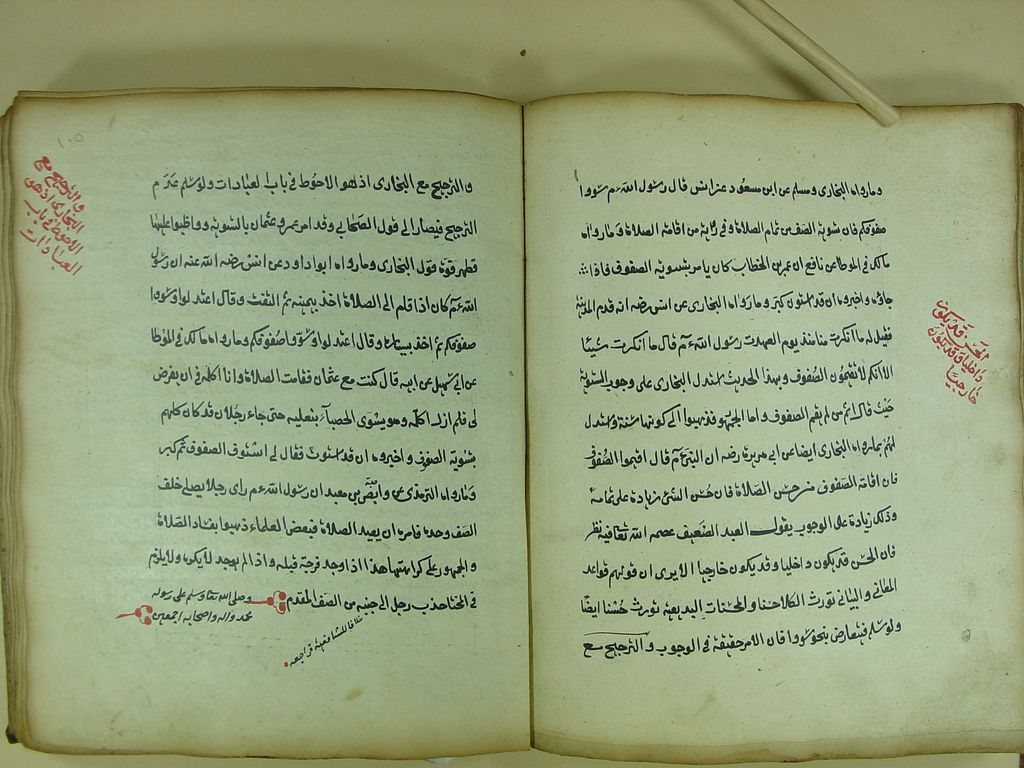 وما رواه البخاري ومسلم عن ابن مسعود عن انس قال رسول الله ءم سووا
صفوفكم فان تسوية الصف من تمام الصلاة وفي رواية من اقامة الصلاة وما رواه
مالك في الموطا عن نافع ان عمر بن الخطاب كان يامر بتسوية الصفوف فاذا
جاؤه واخبروه ان قد استوت كبر وما رواه البخاري عن انس رضه انه قدم المدينة
فقيل له ما انكرت منا منذ يوم عهدت رسول الله ءم قال ما انكرت شيئا
الا انكم لا تقيمون الصفوف وبهذا الحديث استدل البخاري على وجوب التسوية
حيث قال اثم من لم يقم الصفوف واما الجمهور فذهبوا الى كونها سنة واستدل
لهم بما رواه البخاري ايضا عن ابي هريرة رضه ان النبي ءم قال اقيموا الصفوف
فان اقامة الصفوف من حسن الصلاة فان حسن الشئ زيادة على تمامه
وذلك زيادة على الوجوب يقول العبد الضعيف عصمه الله تعالى فيه نظر
فان الحسن قد يكون داخليا وقد يكون خارجيا الا يرى ان قولهم قواعد
المعاني والبياني تورث الكلام حسنا والمحسنات البديعية تورث حسنا ايضا
ولو سلم فيتعارض بنحو سووا فان الامر حقيقة في الوجوب والترجيح مع
الحسن قد يكون
داخليا وقد يكون
خارجيا
والترجيح مع البخاري اذ هو الاحوط في باب العبادات ولو سلم عدم
الترجيح فيصار الى قول الصحابي وقد امر عمر وعثمان بالتسوية وواظبوا عليها
فظهر قوة قول البخاري وما رواه ابو داود عن انس رضه الله عنه ان رسول
الله ءم كان اذا قام الى الصلاة اخذ بيمينه ثم التفت وقال اعتدلوا وسووا
صفوفكم ثم اخذ بيساره وقال اعتدلوا وسووا صفوفكم وما رواه مالك في الموطا
عن ابي سهيل عن ابيه قال كنت مع عثمان فقامت الصلاة وانا اكلمه في ان يفرض
لي فلم ازل اكلمه وهو يسوى الحصباء بنعليه حتى جاء رجلان قد كان وكلهم
بتسوية الصفوف واخبروه ان قد استوت فقال لي استو في الصفوف ثم كبر
وما رواه الترمذي عن وابصة بن معبد ان رسول الله ءم راى رجلا يصلى خلف
الصف وحده فامره ان يعيد الصلاة فبعض العلماء ذهبوا بفساد الصلاة
والجمهور على كراهتها هذا اذا وجد فرجة قبله واذا لم يوجد لا يكره ولا يلزم
في المختار جذب رجل الى جنبه من الصف المقدم
خلافا للشافعية فراجعه
وصلى الله تعالى وسلم على رسوله
محمد واله واصحابه اجمعين
والترجيح مع
البخاري اذ هو
الاحوط في باب
العبادات
١٠٥